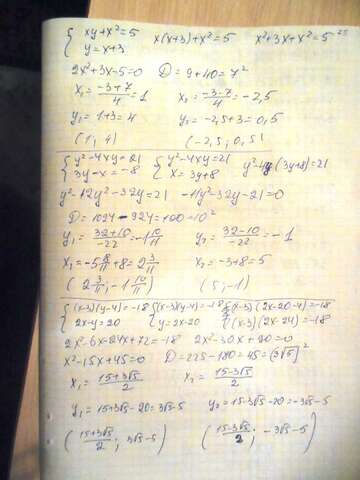 { xy+x²=5   x(x+3)+x²=5   x²+3x+x²=5
y=x+3
2x²+3x-5=0   D=9+40=7²
x₁=(-3+7)/4=1   x₂=(-3-7)/4=-2,5
y₁=1+3=4   y₂=-2,5+3=0,5
(1; 4)   (-2,5; 0,5)
{ y²-4xy=21   { y²-4xy=21   y²-4y(3y+8)=21
3y-x=-8   x=3y+8
y²-12y²-32y=21   -11y²-32y-21=0
D=1024-924=100=10²
y₁=(32+10)/-22=-1 10/11   y₂=(32-10)/-22=-1
x₁=-5 8/11+8=2 3/11   x₂=-3+8=5
(2 3/11; -1 10/11)   (5; -1)
{ (x-3)(y-4)=-18   { (x-3)(y-4)=-18   (x-3)(2x-20-4)=-18
2x-y=20   y=2x-20   (x-3)(2x-24)=-18
2x²-6x-24x+72=-18   2x²-30x+90=0
x²-15x+45=0   D=225-180=45=(3√5)²
x₁=(15+3√5)/2   x₂=(15-3√5)/2
y₁=15+3√5-20=3√5-5   y₂=15-3√5-20=-3√5-5
((15+3√5)/2; 3√5-5)   ((15-3√5)/2; -3√5-5)